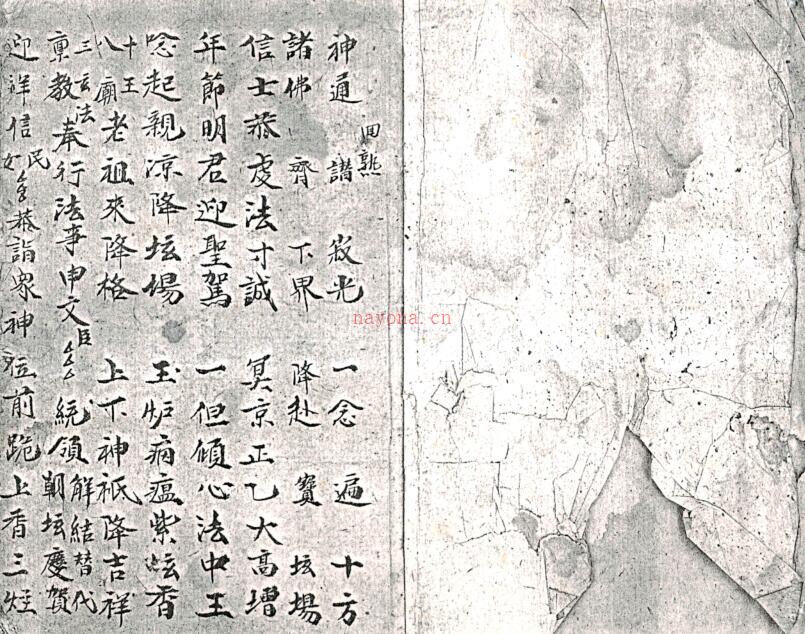 神通 譜 寂光 一念 遍 十方
田熟
諸佛 齊 下界 降赴 寶 坛場
信士恭虔法寸誠 冥京正乙大高增
年節明君迎聖駕 一但傾心法中王
唸起親凉降坛場 玉炉病瘟紫坛香
十王
八廟老祖來降格 上下神祇降吉祥
三玄法
稟教奉行法事申文臣 統領解結替代
朝坛慶賀
迎祥信民女 恭詣衆神位前跪上香三炷
nayona.cn